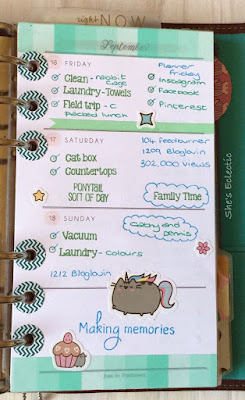 right NOW
September
16 FRIDAY
Planner
Friday
Clean - rabbit
cage
Instagram
Laundry - Towels
Facebook
Field trip - C
Pinterest
packed lunch
17 SATURDAY
Cat box
Countertops
1209 Bloglovin
302,000 views
PONYTAIL
SORT OF DAY
Family Time
18 SUNDAY
Cathy and
Dennis
Vacuum
Laundry - colours
1212 Bloglovin
Making memories
She's Eclectic